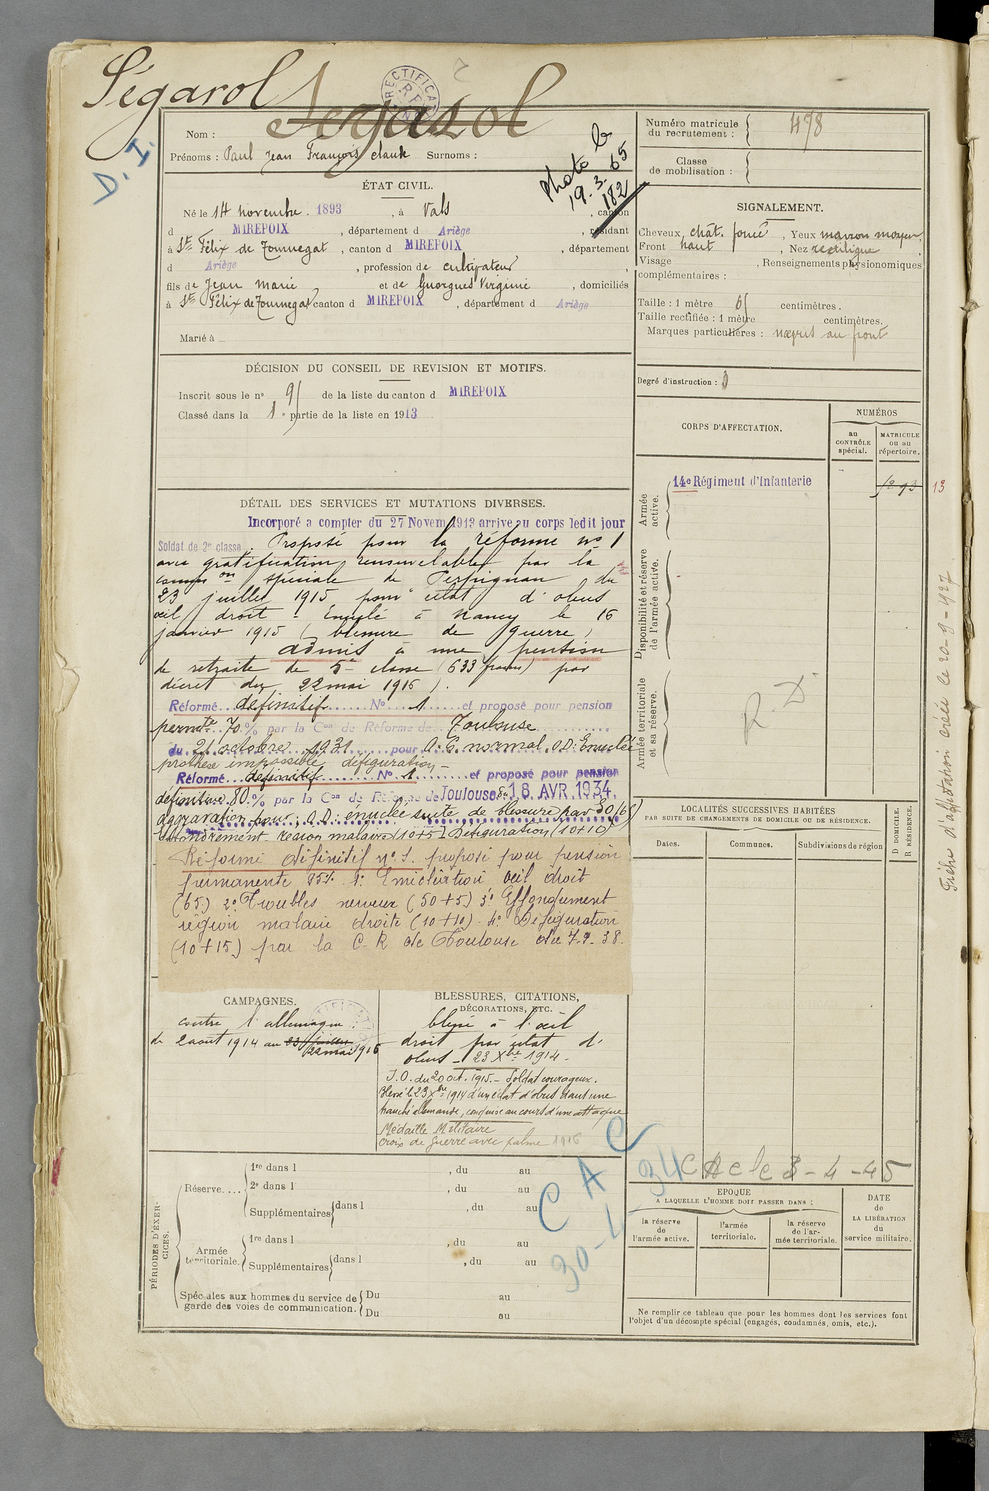 Ségarol
Segarol
RECTIFICA
R F
D. I.
Nom :
Prénoms : Paul Jean François claude Surnoms :
Photo le
19.3.65
182
Numéro matricule
du recrutement : 478
Classe
de mobilisation :
ÉTAT CIVIL.
Né le 14 novembre 1893, à Vals, canton
d MIREPOIX, département d Ariège, résidant
à St Félix de Tournegat, canton d MIREPOIX, département
d Ariège, profession de cultivateur,
fils de Jean Marie et de Guorgues Virginie, domiciliés
à St Félix de Tournegat canton d MIREPOIX, département d Ariège
Marié à
SIGNALEMENT.
Cheveux, chât. foncé, Yeux marron moyen,
Front haut, Nez rectiligne
Visage , Renseignements physionomiques
complémentaires :
Taille : 1 mètre 61 centimètres.
Taille rectifiée : 1 mètre centimètres.
Marques particulières : nœvus au front
Degré d'instruction : 3
DÉCISION DU CONSEIL DE REVISION ET MOTIFS.
Inscrit sous le n° 91 de la liste du canton d MIREPOIX
Classé dans la 1e partie de la liste en 1913
CORPS D'AFFECTATION.
NUMÉROS
au
CONTRÔLE
spécial.
MATRICULE
ou au
répertoire.
Armée
active.
14e Régiment d'Infanterie
13
Disponibilité et réserve
de l'armée active.
Armée territoriale
et sa réserve.
R. D.
DÉTAIL DES SERVICES ET MUTATIONS DIVERSES.
Incorporé a compter du 27 Novem 1913 arrivé au corps ledit jour
Soldat de 2e classe. Proposé pour la réforme no 1
avec gratification renouvelable par la
comm on spéciale de Perpignan du
23 juillet 1915 pour éclat d'obus
œil droit - Enuclé à Nancy le 16
janvier 1915 (blessure de guerre)
admis à une pension
de retraite de 5e classe (633 francs) par
décret du 22 mai 1916).
Réformé définitif N° 1 et proposé pour pension
permte 70 % par la Con de Réforme de Toulouse
du 21 octobre 1931 pour A.G. normal. O.D. Enuclée
prothèse impossible défiguration -
Réformé définitif N° 1 et proposé pour pension
définitive 80 % par la Con de Réforme de Toulouse du 18 AVR. 1934.
aggravation pour : O.D. énuclée suite de blessure par E.O (65)
effondrement région malaire (10+5) Défiguration (10+10)
Réformé définitif n° 1. proposé pour pension
permanente 85% 1° Enucléation œil droit
(65) 2° Troubles nerveux (50+5) 3° Effondrement
région malaire droite (10+10) 4° Défiguration
(10+15) par la C R de Toulouse du 7.9.38.
LOCALITÉS SUCCESSIVES HABITÉES
PAR SUITE DE CHANGEMENTS DE DOMICILE OU DE RÉSIDENCE.
Dates.
Communes.
Subdivisions de région
D DOMICILE.
R RÉSIDENCE.
Fiche d'affectation créée le 20-9-927
CAMPAGNES.
contre l'allemagne :
du 2 août 1914 au 23 juillet
22 mai 1916
BLESSURES, CITATIONS,
DÉCORATIONS, ETC.
blessé à l'œil
droit par éclat d'
obus - 23 Xbre 1914.
J.O. du 20 oct. 1915. - Soldat courageux.
Blessé le 23 Xbre 1914 d'un éclat d'obus dans une
tranchée allemande, conquise au cours d'une attaque
Médaille Militaire
Croix de guerre avec palme 1916
C A C
30-4
34
C A C le 3-4-45
PÉRIODES D'EXERCICES.
Réserve....
1re dans l , du au
2e dans l , du au
Supplémentaires dans l , du au
Armée
territoriale.
1re dans l , du au
Supplémentaires dans l , du au
Spéciales aux hommes du service de
garde des voies de communication.
Du au
Du au
EPOQUE
A LAQUELLE L'HOMME DOIT PASSER DANS :
la réserve
de
l'armée active.
l'armée
territoriale.
la réserve
de l'ar-
mée territoriale.
DATE
de
LA LIBÉRATION
du
service militaire.
Ne remplir ce tableau que pour les hommes dont les services font
l'objet d'un décompte spécial (engagés, condamnés, omis, etc.).